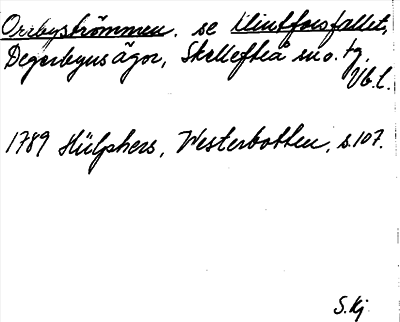 Orrbyströmmen. se Klintforsfallet,
Degerbyns ägor, Skellefteå sn o. tg.
Vb.l.
1789 Hülphers, Westerbotten, s.107.
S.Kj.